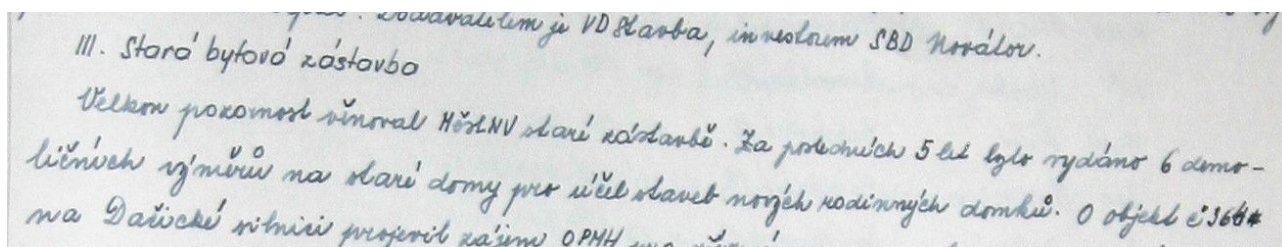 Dodavatelem je VD Stavba, investorem SBD Novátor.
III. Stará bytová zástavba
Velkou pozornost věnoval MěstNV staré zástavbě. Za posledních 5 let bylo vydáno 6 demo-
ličních výměrů na staré domy pro účel staveb nových rodinných domků. O objekt č
na Dačické silnici projevil zájem OPMH pro